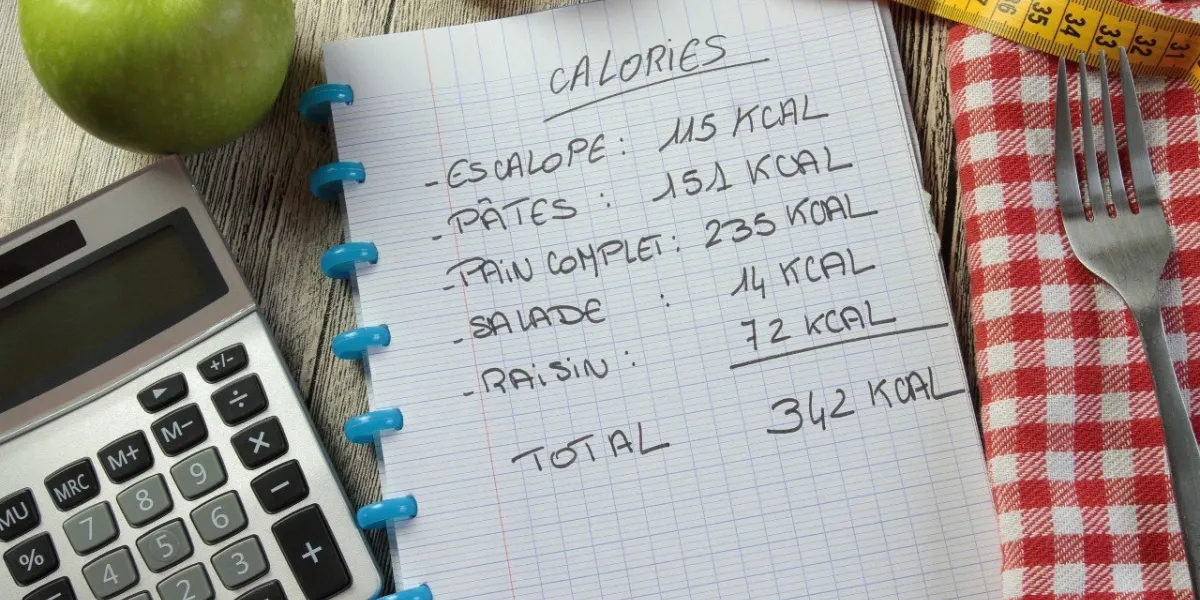 CALORIES
- ESCALOPE : 115 KCAL
- PÂTES : 151 KCAL
- PAIN COMPLET : 235 KCAL
- SALADE : 14 KCAL
- RAISIN : 72 KCAL
TOTAL 342 KCAL
35 34 33 32 31
+/-
► ÷
M- ×
M+ 9 −
MRC 8 6 +
MU 7 5 3
% 4 2